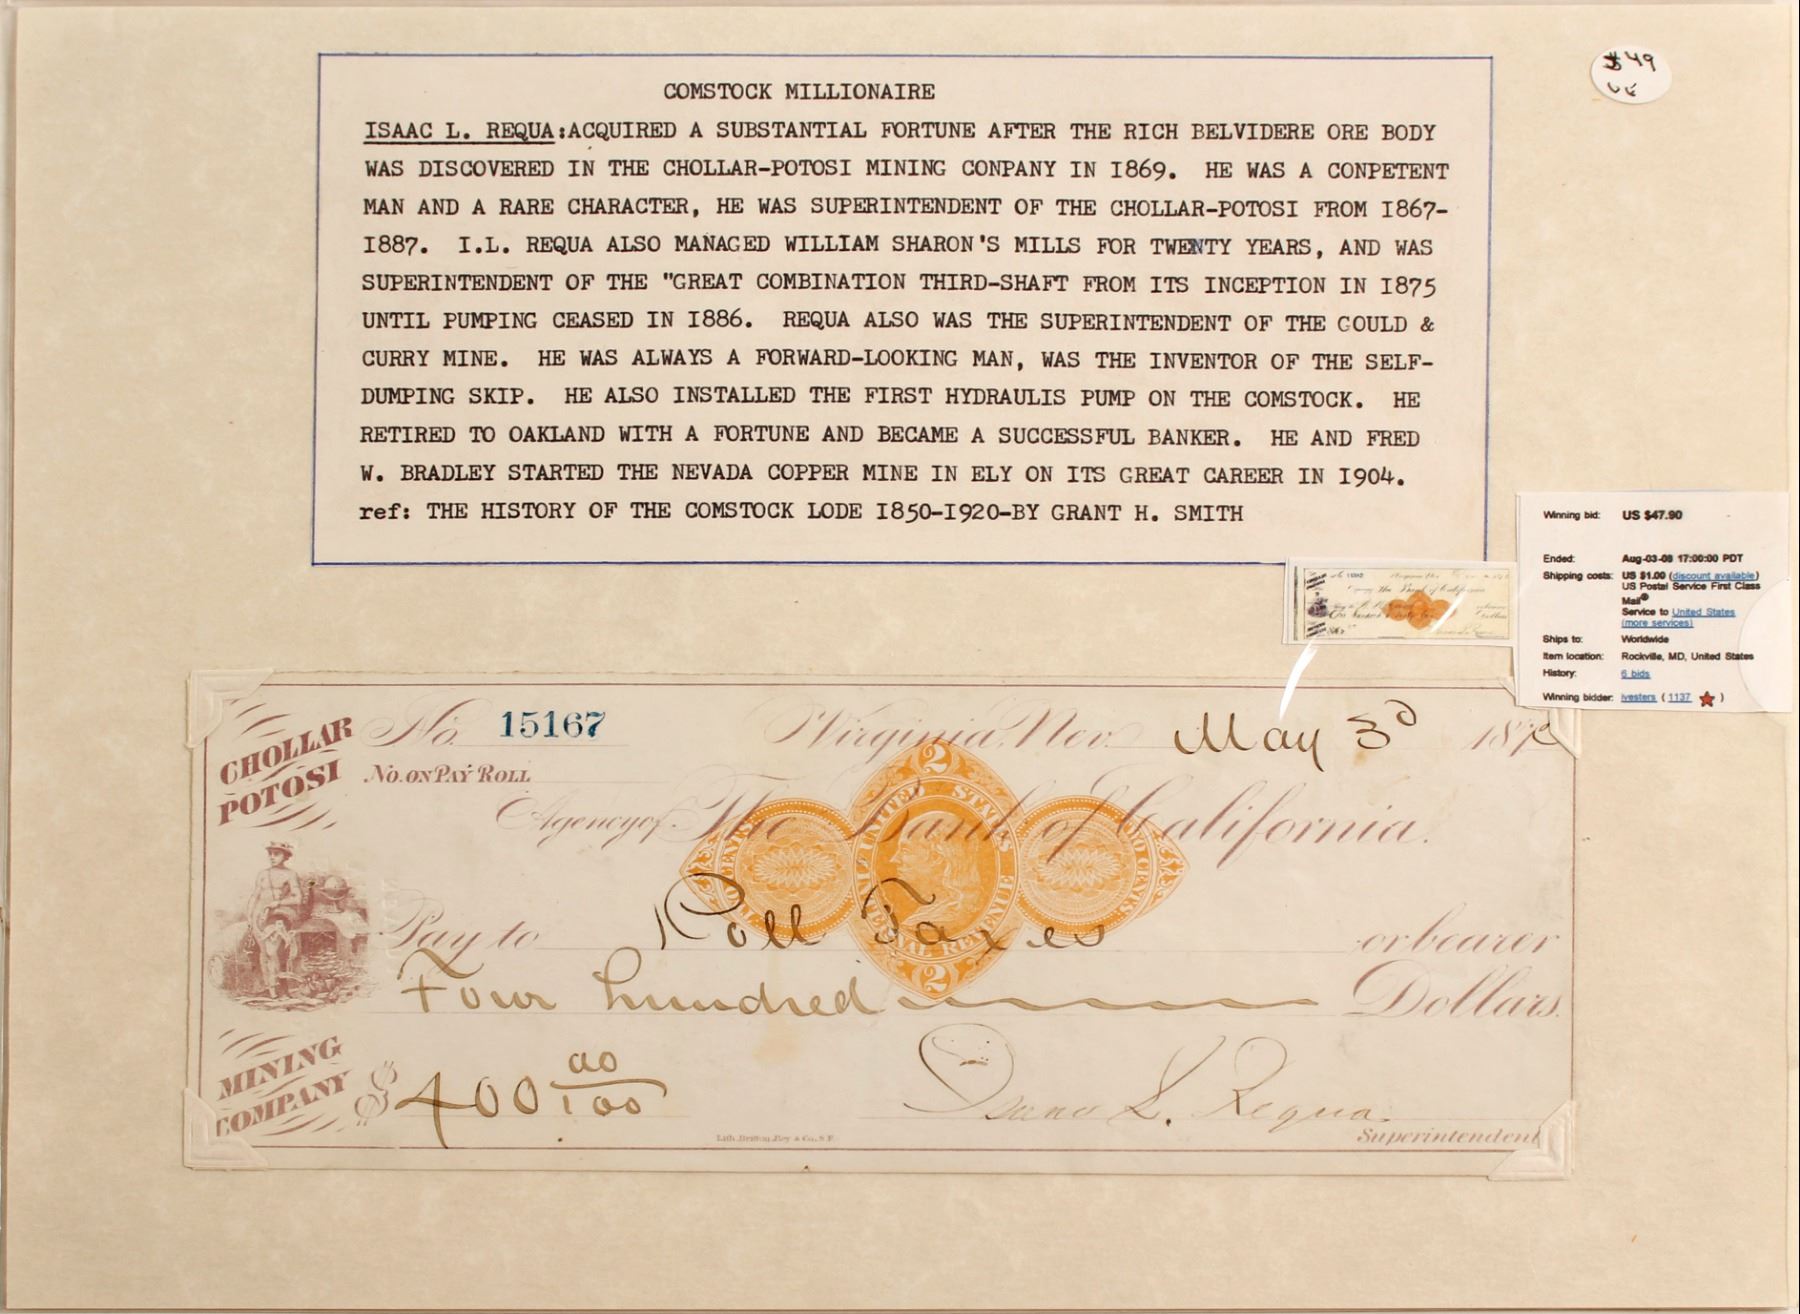 COMSTOCK MILLIONAIRE
ISAAC L. REQUA:ACQUIRED A SUBSTANTIAL FORTUNE AFTER THE RICH BELVIDERE ORE BODY
WAS DISCOVERED IN THE CHOLLAR-POTOSI MINING CONPANY IN I869. HE WAS A CONPETENT
MAN AND A RARE CHARACTER, HE WAS SUPERINTENDENT OF THE CHOLLAR-POTOSI FROM I867-
I887. I.L. REQUA ALSO MANAGED WILLIAM SHARON'S MILLS FOR TWENTY YEARS, AND WAS
SUPERINTENDENT OF THE "GREAT COMBINATION THIRD-SHAFT FROM ITS INCEPTION IN I875
UNTIL PUMPING CEASED IN I886. REQUA ALSO WAS THE SUPERINTENDENT OF THE GOULD &
CURRY MINE. HE WAS ALWAYS A FORWARD-LOOKING MAN, WAS THE INVENTOR OF THE SELF-
DUMPING SKIP. HE ALSO INSTALLED THE FIRST HYDRAULIS PUMP ON THE COMSTOCK. HE
RETIRED TO OAKLAND WITH A FORTUNE AND BECAME A SUCCESSFUL BANKER. HE AND FRED
W. BRADLEY STARTED THE NEVADA COPPER MINE IN ELY ON ITS GREAT CAREER IN I904.
ref: THE HISTORY OF THE COMSTOCK LODE I850-I920-BY GRANT H. SMITH
$49
Winning bid: US $47.90
Ended: Aug-03-08 17:00:00 PDT
Shipping costs: US $1.00 (discount available)
US Postal Service First Class
Mail®
Service to United States
(more services)
Ships to: Worldwide
Item location: Rockville, MD, United States
History: 6 bids
Winning bidder: ivesters ( 1137 )
CHOLLAR
POTOSI
No. 15167
Virginia, Nev. May 3d 187
No. on Pay Roll
Agency of The Bank of California.
2
UNITED STATES
INTERNAL REVENUE
TWO CENTS
TWO CENTS
2
Pay to Poll Taxes or bearer
Four hundred Dollars.
MINING
COMPANY
$400 00/100
Isaac L. Requa
Superintendent
Lith. Britton, Rey & Co. S.F.